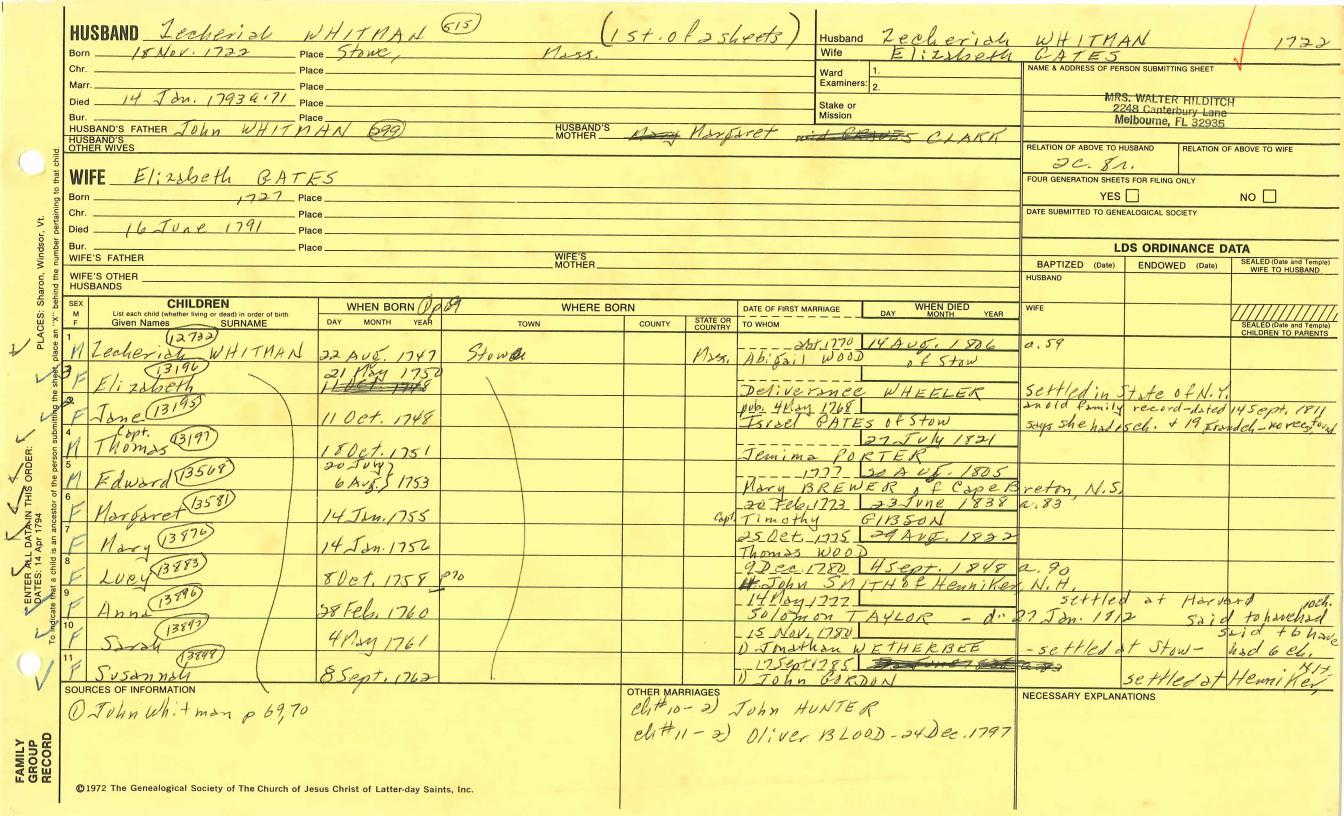 HUSBAND Zecheriah WHITMAN 515 (1st. of 2 sheets)
Born 18 Nov. 1722 Place Stowe, Mass.
Chr. Place
Marr. Place
Died 14 Jan. 1793 a. 71 Place
Bur. Place
HUSBAND'S FATHER John WHITMAN 299 HUSBAND'S MOTHER Margaret CLARK
HUSBAND'S OTHER WIVES
WIFE Elizabeth GATES
Born 1727 Place
Chr. Place
Died 16 June 1791 Place
Bur. Place
WIFE'S FATHER WIFE'S MOTHER
WIFE'S OTHER HUSBANDS
Husband Zecheriah WHITMAN 1722
Wife Elizabeth GATES
Ward Examiners: 1. 2.
Stake or Mission
NAME & ADDRESS OF PERSON SUBMITTING SHEET
MRS. WALTER HILDITCH
2248 Canterbury Lane
Melbourne, FL 32935
RELATION OF ABOVE TO HUSBAND RELATION OF ABOVE TO WIFE
2c. 8r.
FOUR GENERATION SHEETS FOR FILING ONLY
YES NO
DATE SUBMITTED TO GENEALOGICAL SOCIETY
LDS ORDINANCE DATA
BAPTIZED (Date) ENDOWED (Date) SEALED (Date and Temple) WIFE TO HUSBAND
HUSBAND
WIFE
SEALED (Date and Temple) CHILDREN TO PARENTS
SEX M F
CHILDREN
List each child (whether living or dead) in order of birth
Given Names SURNAME
WHEN BORN ① p 69
DAY MONTH YEAR
WHERE BORN
TOWN COUNTY STATE OR COUNTRY
DATE OF FIRST MARRIAGE
TO WHOM
WHEN DIED
DAY MONTH YEAR
1 M Zecheriah WHITMAN 12732 22 Aug. 1747 Stowe Mass. 1770 14 Aug. 1806 a. 59
Abigail WOOD of Stow
3 F Elizabeth 13196 21 May 1750 11 Oct. 1748
Deliverance WHEELER settled in State of N.Y.
2 F Jane 13195 11 Oct. 1748 pub. 4 May 1768 an old family record-dated 14 Sept. 1811
Israel GATES of Stow says she had ch. & 19 grandch-
4 M Capt. Thomas 13197 18 Oct. 1751 27 July 1821
Jemima PORTER
5 M Edward 13568 20 July 6 Aug. 1753 1777 20 Aug. 1805
Mary BREWER of Cape Breton, N.S.
6 F Margaret 13581 14 Jan. 1755 20 Feb. 1773 23 June 1838 a. 83
Capt. Timothy GIBSON
7 F Mary 13876 14 Jan. 1756 25 Oct. 1775 29 Aug. 1822
Thomas WOOD
8 F Lucy 13883 8 Oct. 1758 p70 9 Dec 1780 4 Sept. 1848 a. 90
John SMITH of Henniker, N.H.
9 F Anna 13896 28 Feb. 1760 14 May 1777 settled at Harvard
Solomon TAYLOR - d. 27 Jan. 1812 said to have had 10 ch.
10 F Sarah 13897 4 May 1761 15 Nov. 1780 said to have
1) Jonathan WETHERBEE - settled at Stow - had 6 ch.
11 F Susannah 13898 8 Sept. 1762 17 Sept. 1785
1) John GORDON settled at Henniker, N.H.
SOURCES OF INFORMATION
① John Whitman p 69,70
OTHER MARRIAGES
ch #10 - 2) John HUNTER
ch #11 - 2) Oliver BLOOD - 24 Dec. 1797
NECESSARY EXPLANATIONS
©1972 The Genealogical Society of The Church of Jesus Christ of Latter-day Saints, Inc.
FAMILY GROUP RECORD
ENTER ALL DATA IN THIS ORDER:
DATES: 14 Apr 1794 PLACES: Sharon, Windsor, Vt.
To indicate that a child is an ancestor of the person submitting the sheet, place an "X" behind the number pertaining to that child.